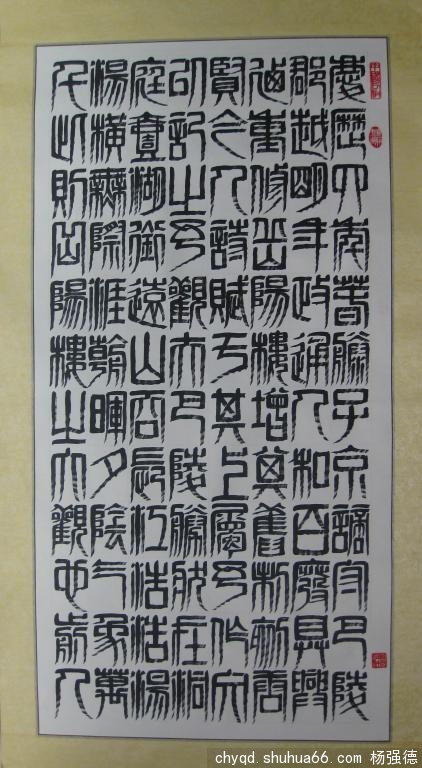 慶歷四年春滕子京謫守巴陵
郡越明年政通人和百廢具興
迺重修岳陽樓增其舊制刻唐
賢今人詩賦于其上屬予作文
以記之予觀夫巴陵勝狀在洞
庭壹湖銜遠山吞長江浩浩湯
湯橫無際涯朝暉夕陰气象萬
千此則岳陽樓之大觀也前人
chyqd.shuhua66.com 杨强德